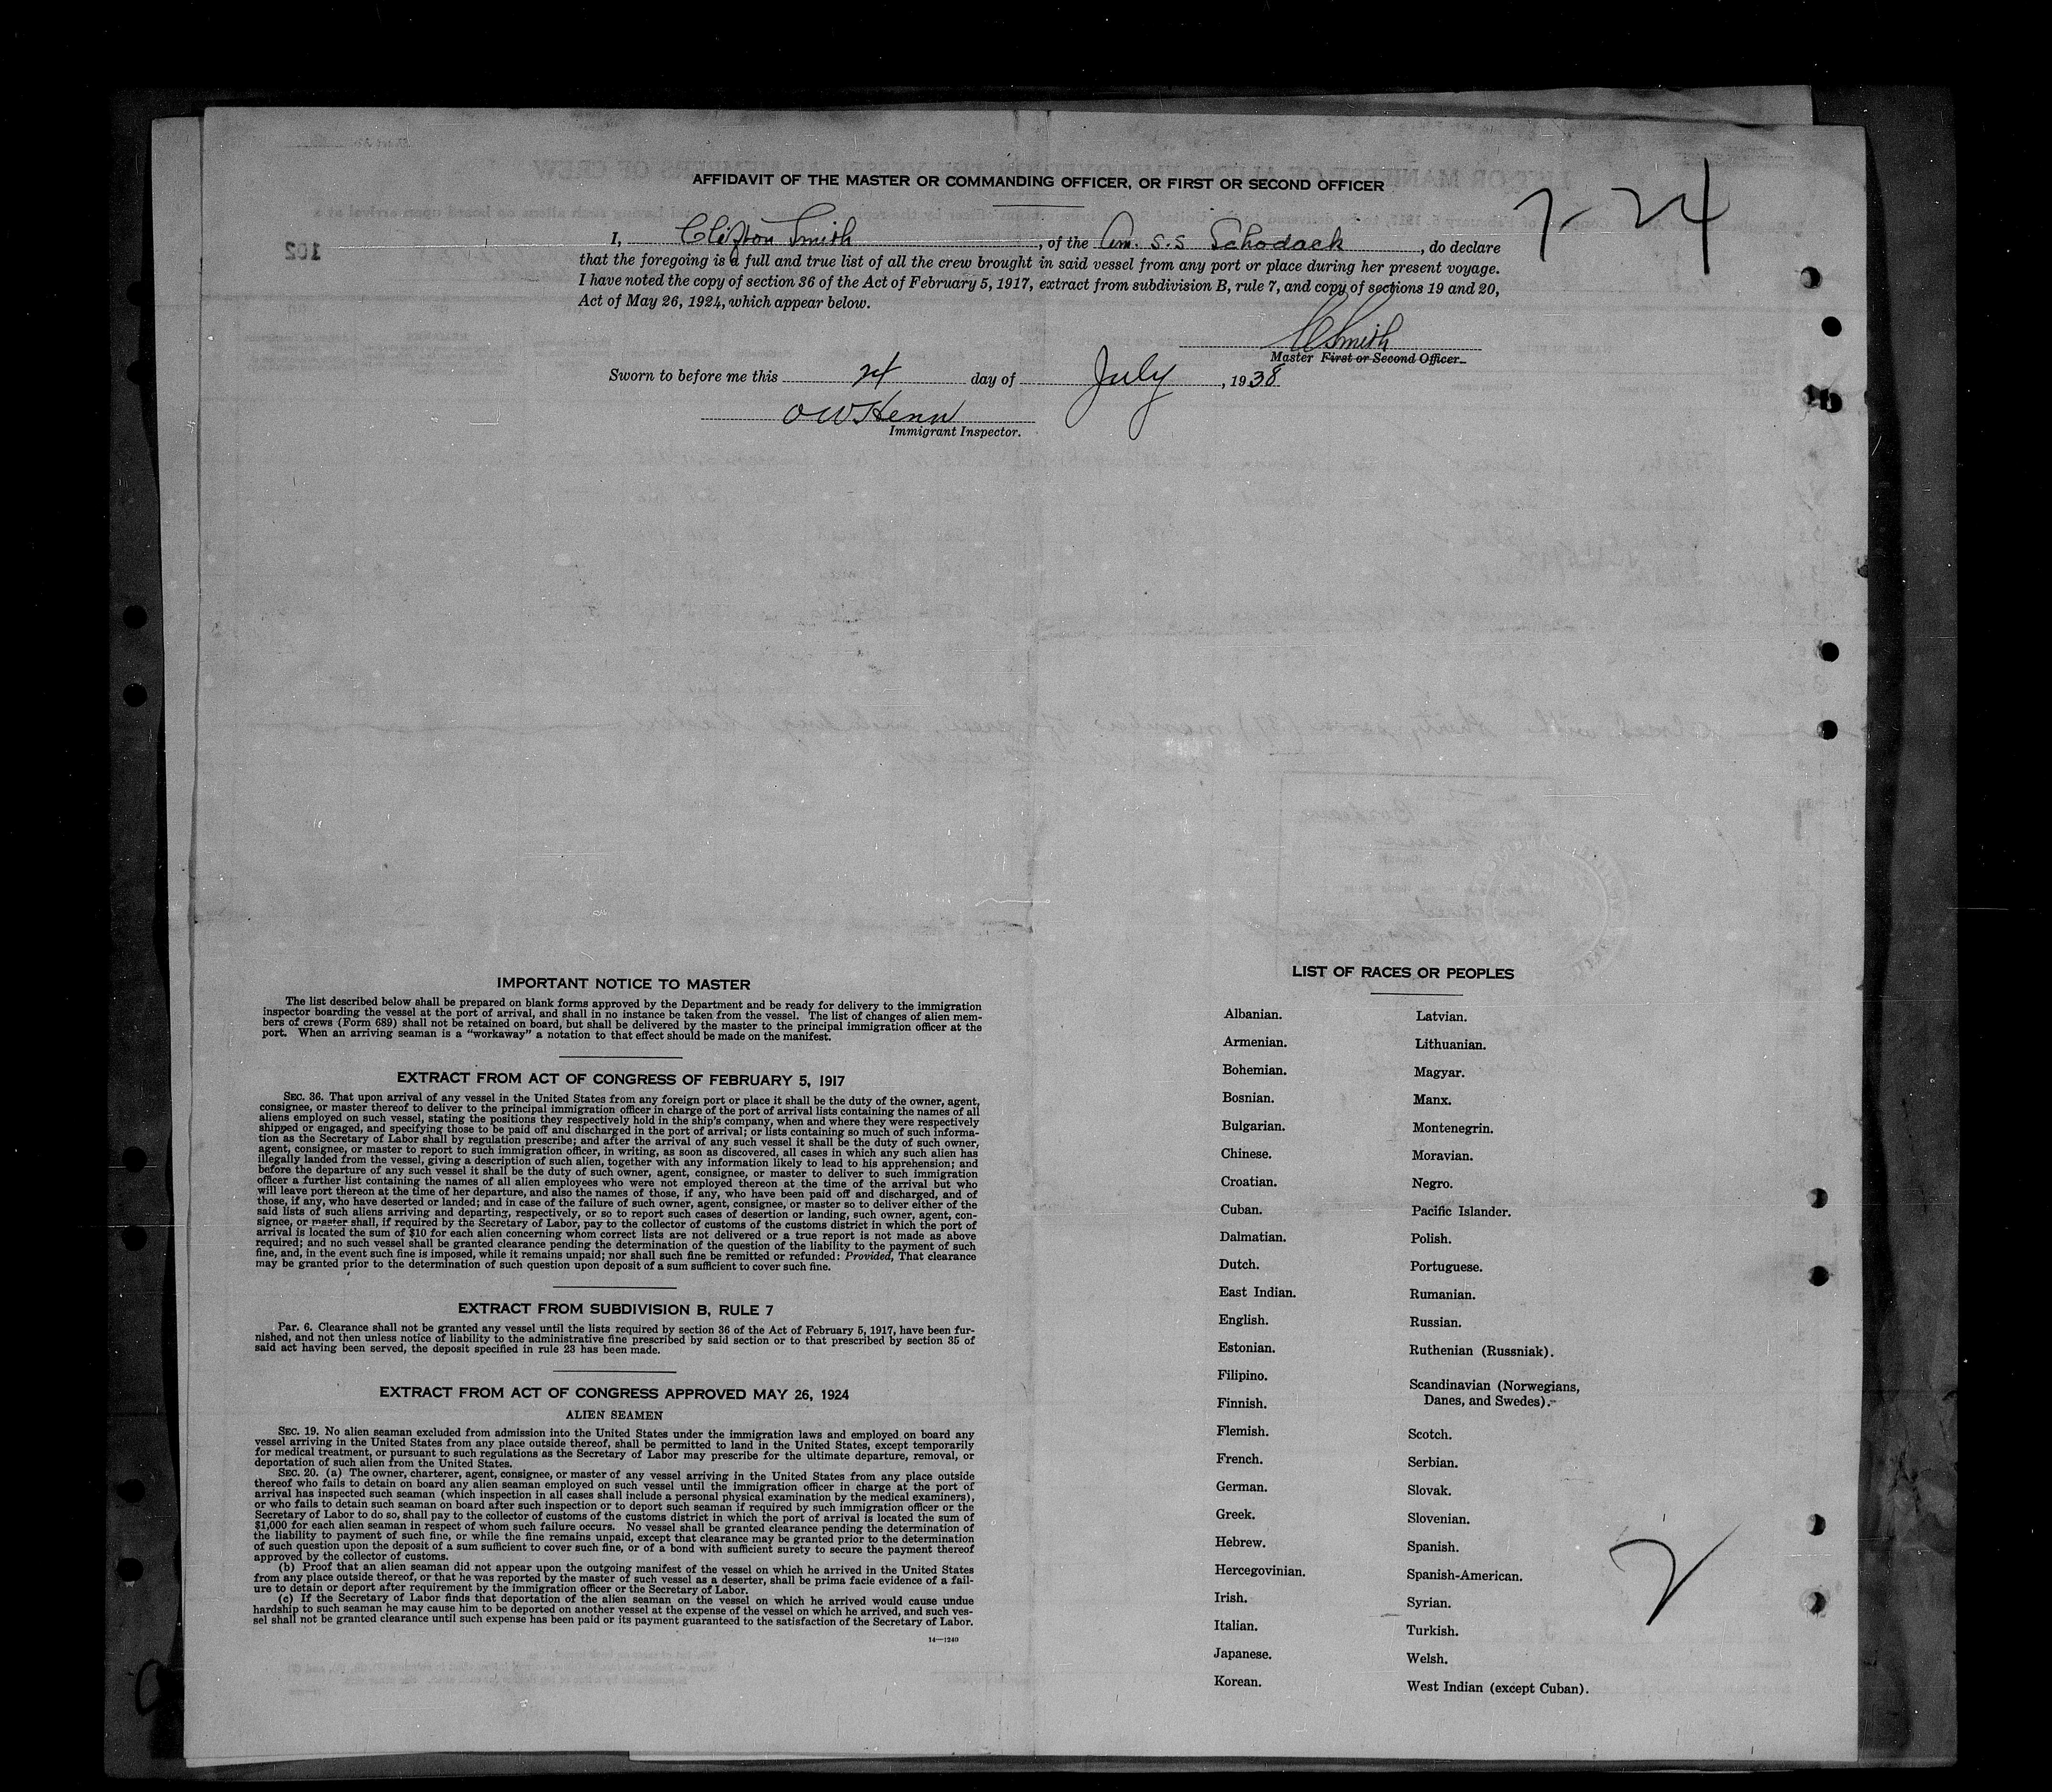 AFFIDAVIT OF THE MASTER OR COMMANDING OFFICER, OR FIRST OR SECOND OFFICER
7-24
I, Clifton Smith, of the Am. S.S Schodack, do declare
that the foregoing is a full and true list of all the crew brought in said vessel from any port or place during her present voyage.
I have noted the copy of section 36 of the Act of February 5, 1917, extract from subdivision B, rule 7, and copy of sections 19 and 20,
Act of May 26, 1924, which appear below.
C Smith
Master First or Second Officer.
Sworn to before me this 24 day of July, 1938
O W Henn
Immigrant Inspector.
102
IMPORTANT NOTICE TO MASTER
The list described below shall be prepared on blank forms approved by the Department and be ready for delivery to the immigration
inspector boarding the vessel at the port of arrival, and shall in no instance be taken from the vessel. The list of changes of alien mem-
bers of crews (Form 689) shall not be retained on board, but shall be delivered by the master to the principal immigration officer at the
port. When an arriving seaman is a "workaway" a notation to that effect should be made on the manifest.
EXTRACT FROM ACT OF CONGRESS OF FEBRUARY 5, 1917
SEC. 36. That upon arrival of any vessel in the United States from any foreign port or place it shall be the duty of the owner, agent,
consignee, or master thereof to deliver to the principal immigration officer in charge of the port of arrival lists containing the names of all
aliens employed on such vessel, stating the positions they respectively hold in the ship's company, when and where they were respectively
shipped or engaged, and specifying those to be paid off and discharged in the port of arrival; or lists containing so much of such informa-
tion as the Secretary of Labor shall by regulation prescribe; and after the arrival of any such vessel it shall be the duty of such owner,
agent, consignee, or master to report to such immigration officer, in writing, as soon as discovered, all cases in which any such alien has
illegally landed from the vessel, giving a description of such alien, together with any information likely to lead to his apprehension; and
before the departure of any such vessel it shall be the duty of such owner, agent, consignee, or master to deliver to such immigration
officer a further list containing the names of all alien employees who were not employed thereon at the time of the arrival but who
will leave port thereon at the time of her departure, and also the names of those, if any, who have been paid off and discharged, and of
those, if any, who have deserted or landed; and in case of the failure of such owner, agent, consignee, or master so to deliver either of the
said lists of such aliens arriving and departing, respectively, or so to report such cases of desertion or landing, such owner, agent, con-
signee, or master shall, if required by the Secretary of Labor, pay to the collector of customs of the customs district in which the port of
arrival is located the sum of $10 for each alien concerning whom correct lists are not delivered or a true report is not made as above
required; and no such vessel shall be granted clearance pending the determination of the question of the liability to the payment of such
fine, and, in the event such fine is imposed, while it remains unpaid; nor shall such fine be remitted or refunded: Provided, That clearance
may be granted prior to the determination of such question upon deposit of a sum sufficient to cover such fine.
EXTRACT FROM SUBDIVISION B, RULE 7
Par. 6. Clearance shall not be granted any vessel until the lists required by section 36 of the Act of February 5, 1917, have been fur-
nished, and not then unless notice of liability to the administrative fine prescribed by said section or to that prescribed by section 35 of
said act having been served, the deposit specified in rule 23 has been made.
EXTRACT FROM ACT OF CONGRESS APPROVED MAY 26, 1924
ALIEN SEAMEN
SEC. 19. No alien seaman excluded from admission into the United States under the immigration laws and employed on board any
vessel arriving in the United States from any place outside thereof, shall be permitted to land in the United States, except temporarily
for medical treatment, or pursuant to such regulations as the Secretary of Labor may prescribe for the ultimate departure, removal, or
deportation of such alien from the United States.
SEC. 20. (a) The owner, charterer, agent, consignee, or master of any vessel arriving in the United States from any place outside
thereof who fails to detain on board any alien seaman employed on such vessel until the immigration officer in charge at the port of
arrival has inspected such seaman (which inspection in all cases shall include a personal physical examination by the medical examiners),
or who fails to detain such seaman on board after such inspection or to deport such seaman if required by such immigration officer or the
Secretary of Labor to do so, shall pay to the collector of customs of the customs district in which the port of arrival is located the sum of
$1,000 for each alien seaman in respect of whom such failure occurs. No vessel shall be granted clearance pending the determination of
the liability to payment of such fine, or while the fine remains unpaid, except that clearance may be granted prior to the determination
of such question upon the deposit of a sum sufficient to cover such fine, or of a bond with sufficient surety to secure the payment thereof
approved by the collector of customs.
(b) Proof that an alien seaman did not appear upon the outgoing manifest of the vessel on which he arrived in the United States
from any place outside thereof, or that he was reported by the master of such vessel as a deserter, shall be prima facie evidence of a fail-
ure to detain or deport after requirement by the immigration officer or the Secretary of Labor.
(c) If the Secretary of Labor finds that deportation of the alien seaman on the vessel on which he arrived would cause undue
hardship to such seaman he may cause him to be deported on another vessel at the expense of the vessel on which he arrived, and such ves-
sel shall not be granted clearance until such expense has been paid or its payment guaranteed to the satisfaction of the Secretary of Labor.
14—1240
LIST OF RACES OR PEOPLES
Albanian.
Armenian.
Bohemian.
Bosnian.
Bulgarian.
Chinese.
Croatian.
Cuban.
Dalmatian.
Dutch.
East Indian.
English.
Estonian.
Filipino.
Finnish.
Flemish.
French.
German.
Greek.
Hebrew.
Hercegovinian.
Irish.
Italian.
Japanese.
Korean.
Latvian.
Lithuanian.
Magyar.
Manx.
Montenegrin.
Moravian.
Negro.
Pacific Islander.
Polish.
Portuguese.
Rumanian.
Russian.
Ruthenian (Russniak).
Scandinavian (Norwegians,
Danes, and Swedes).
Scotch.
Serbian.
Slovak.
Slovenian.
Spanish.
Spanish-American.
Syrian.
Turkish.
Welsh.
West Indian (except Cuban).
2